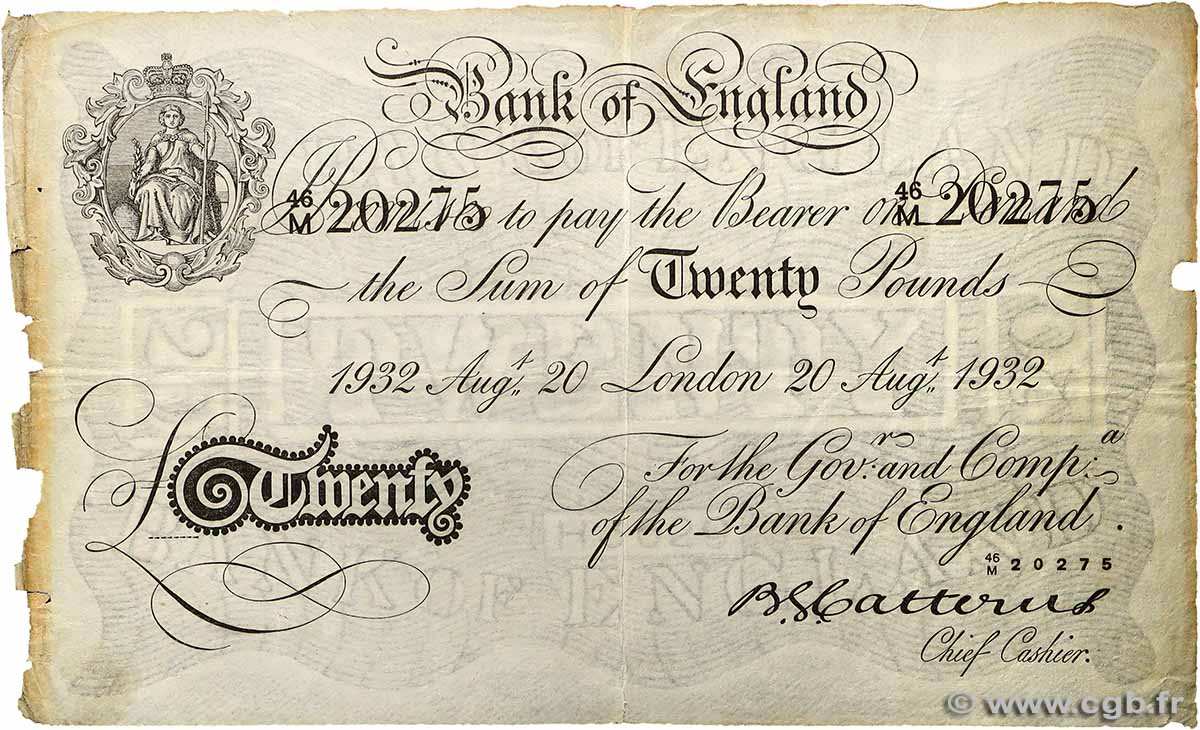 Bank of England
46/M 20275 46/M 20275
Promise to pay the Bearer on Demand
the Sum of Twenty Pounds
1932 Augt. 20 London 20 Augt. 1932
£ Twenty
For the Govr. and Compa.
of the Bank of England.
46/M 20275
B.G. Catterns
Chief Cashier.
© www.cgb.fr